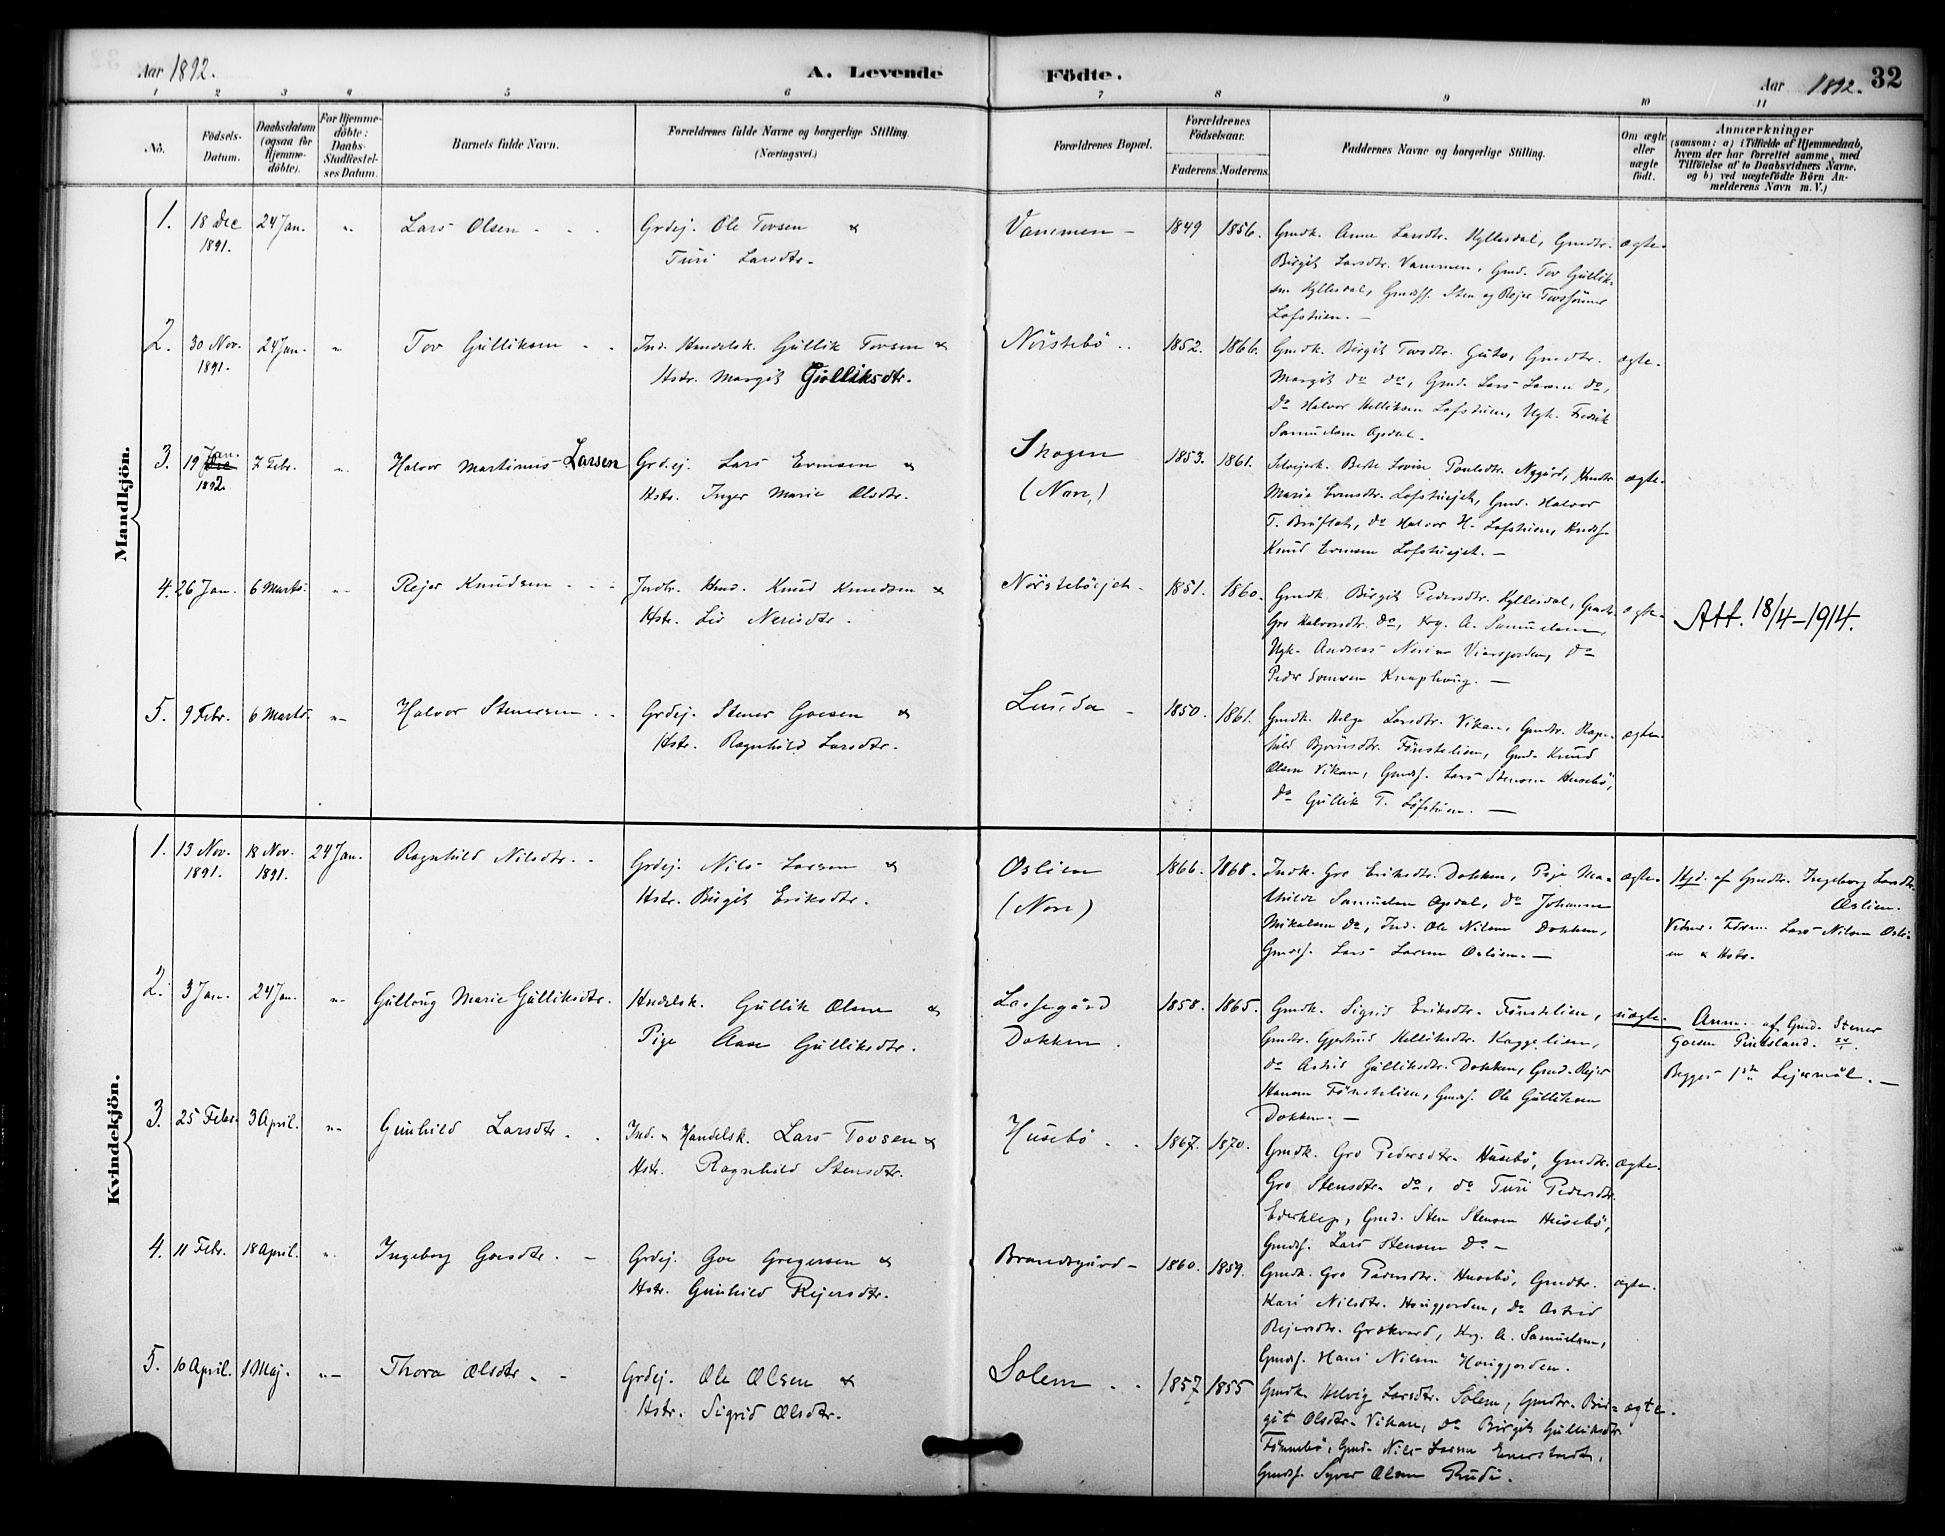 Aar 1892.
A. Levende Födte.
Aar 1892. 32
1 2 3 4 5 6 7 8 9 10 11
No.
Födsels-Datum.
Daabsdatum (ogsaa for Hjemme-döbte).
For Hjemme-döbte: Daabs-Stadfæstel-ses Datum.
Barnets fulde Navn.
Forældrenes fulde Navne og borgerlige Stilling. (Næringsvei.)
Forældrenes Bopæl.
Forældrenes Födselsaar.
Faderens. Moderens.
Faddernes Navne og borgerlige Stilling.
Om ægte eller uægte födt.
Anmærkninger
(saasom: a) i Tilfælde af Hjemmedaab,
hvem der har forrettet samme, med
Tilföielse af to Daabsvidners Navne.
og b) ved uægtefödte Börn An-
melderens Navn m. V.)
Mandkjön.
1. 18 Dec 1891. 24 Jan. " Lars Olsen Grdej. Ole Tovsen &
Turi Larsdtr. Vammen 1849 1856. ægte.
Gmdk. Anne Larsdtr. Kyllesdal, Gmdtr.
Birgit Larsdtr. Vammen, Gmd. Tov Gullik-
sen Kyllesdal, Gmdss. Sten og Rejer Tovssönner
Lofstuen.
2. 30 Nov. 1891. 24 Jan. " Tov Gulliksen Ind. Handelsk. Gullik Tovsen &
Hstr. Margit Gulliksdtr. Nörstebö 1852. 1866. ægte.
Gmdk. Birgit Tovsdtr. Guto, Gmdtr.
Margit do do, Gmd. Lars Larsen do,
do Halvor Helliksen Lofstuen, Ugk. Fredrik
Samuelsen Opdal.
3. 19 Jan. 1892. 7 Febr. " Halvor Martinus Larsen Grdej. Lars Evensen &
Hstr. Inger Marie Olsdtr. Skogen
(Nore,) 1853. 1861. ægte.
Selvejerk. Beste Lovise Paulsdtr. Nygård,
Marie Evensdtr. Lofstuejet, Gmd. Halvor
T. Bruflat, do Halvor H. Lofstuen,
Knud Evensen Lofstuejet.
4. 26 Jan. 6 Marts. " Rejer Knudsen Indr. Hmd. Knud Knudsen &
Hstr. Liv Nerisdtr. Nörsteböejet 1851. 1860. ægte. Att. 18/4-1914.
Gmdk. Birgit Pedersdtr. Kyllesdal, Gmdtr.
Gro Halvorsdtr. do, Krg. A. Samuelsen,
Ugk. Andreas Nerisen Viersjorden, do
Peder Svensen
5. 9 Febr. 6 Marts. " Halvor Stenersen Grdej. Stener Goesen &
Hstr. Ragnhild Larsdtr. 1850. 1861. ægte.
Gmdk. Helge Larsdtr. Vikan, Gmdtr. Ragn-
hild Björnsdtr. Fönstelien, Gmd. Knud
Olsen Vikan, Gmdss. Lars Stensen Husebö,
do Gullik T. Lofstuen.
Kvindekjön.
1. 13 Nov. 1891. 18 Nov. 1891. 24 Jan. Ragnhild Nilsdtr. Grdej. Nils Larsen &
Hstr. Birgit Eriksdtr. Oslien
(Nore) 1866. 1868. ægte.
Indk. Gro Eriksdtr. Dokken, Pige Ma-
thilde Samuelsen Opdal, do Johanne
Mikalsen do, Ind. Ole Nilsen Dokken,
Gmdss. Lars Larsen Oslien.
Hjd. af Gmdtr. Ingeborg Larsdtr.
Oslien.
Vidner: Lars Nilsen Osli-
en & Hstr.
2. 3 Jan. 24 Jan. " Gullaug Marie Gulliksdtr. Handelsk. Gullik Olsen &
Pige Aase Gulliksdtr. Lassegård
Dokken. 1858. 1865. uægte.
Gmdk. Sigrid Eriksdtr. Fönstelien,
Gmdtr. Gjertrud Helliksdtr. Kaggelien,
do Astrid Gulliksdtr. Dokken, Gmd. Rejer
Hansen Fönstelien, Gmdss. Ole Gulliksen
Dokken.
Anm. af Gmd. Stener
Goesen
Begges 1ste Lejermål.
3. 25 Febr. 3 April. " Gunhild Larsdtr. Ind. & Handelsk. Lars Tovsen &
Hstr. Ragnhild Stensdtr. Husebö 1867. 1870. ægte.
Gmdk. Gro Pedersdtr. Husebö, Gmdtr.
Gro Stensdtr. do, do Turi Pedersdtr.
Ederklep, Gmd. Sten Stensen Husebö,
Gmdss. Lars Stensen do
4. 11 Febr. 18 April. " Ingeborg Goesdtr. Grdej. Goe Gregersen &
Hstr. Gunhild Rejersdtr. Brandsgård 1860. 1859. ægte.
Gmdk. Gro Pedersdtr. Husebö, Gmdtr.
Kari Nilsdtr. Hougjorden, do Astrid
Rejersdtr. Grökvard, Krg. A. Samuelsen,
Gmdss. Hans Nilsen Hougjorden.
5. 10 April. 1 Maj. " Thora Olsdtr. Grdej. Ole Olsen &
Hstr. Sigrid Olsdtr. Solem 1857 1855 ægte.
Gmdk. Helvig Larsdtr. Solem, Gmdtr. Bir-
git Olsdtr. Vikan, do Birgit Gulliksdtr.
Fönnebö, Gmd. Nils Larsen
Gmdss. Syver Olsen Rudi.